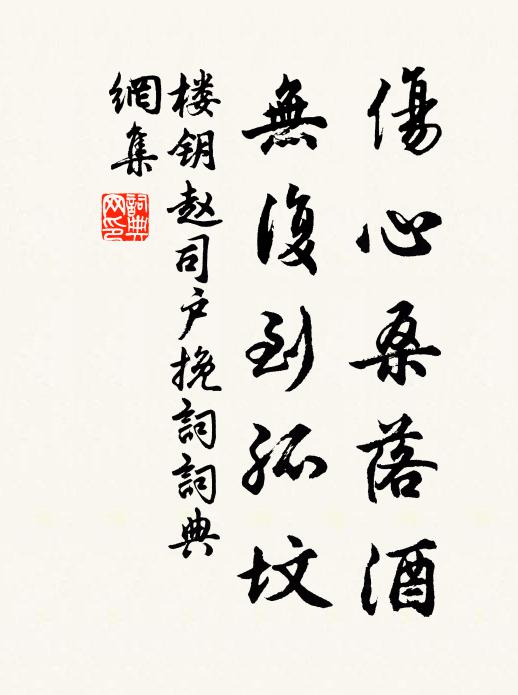 傷心桑落酒
無復到孤墳
楼钥赵司户挽詞詞典
網集
詞典网印